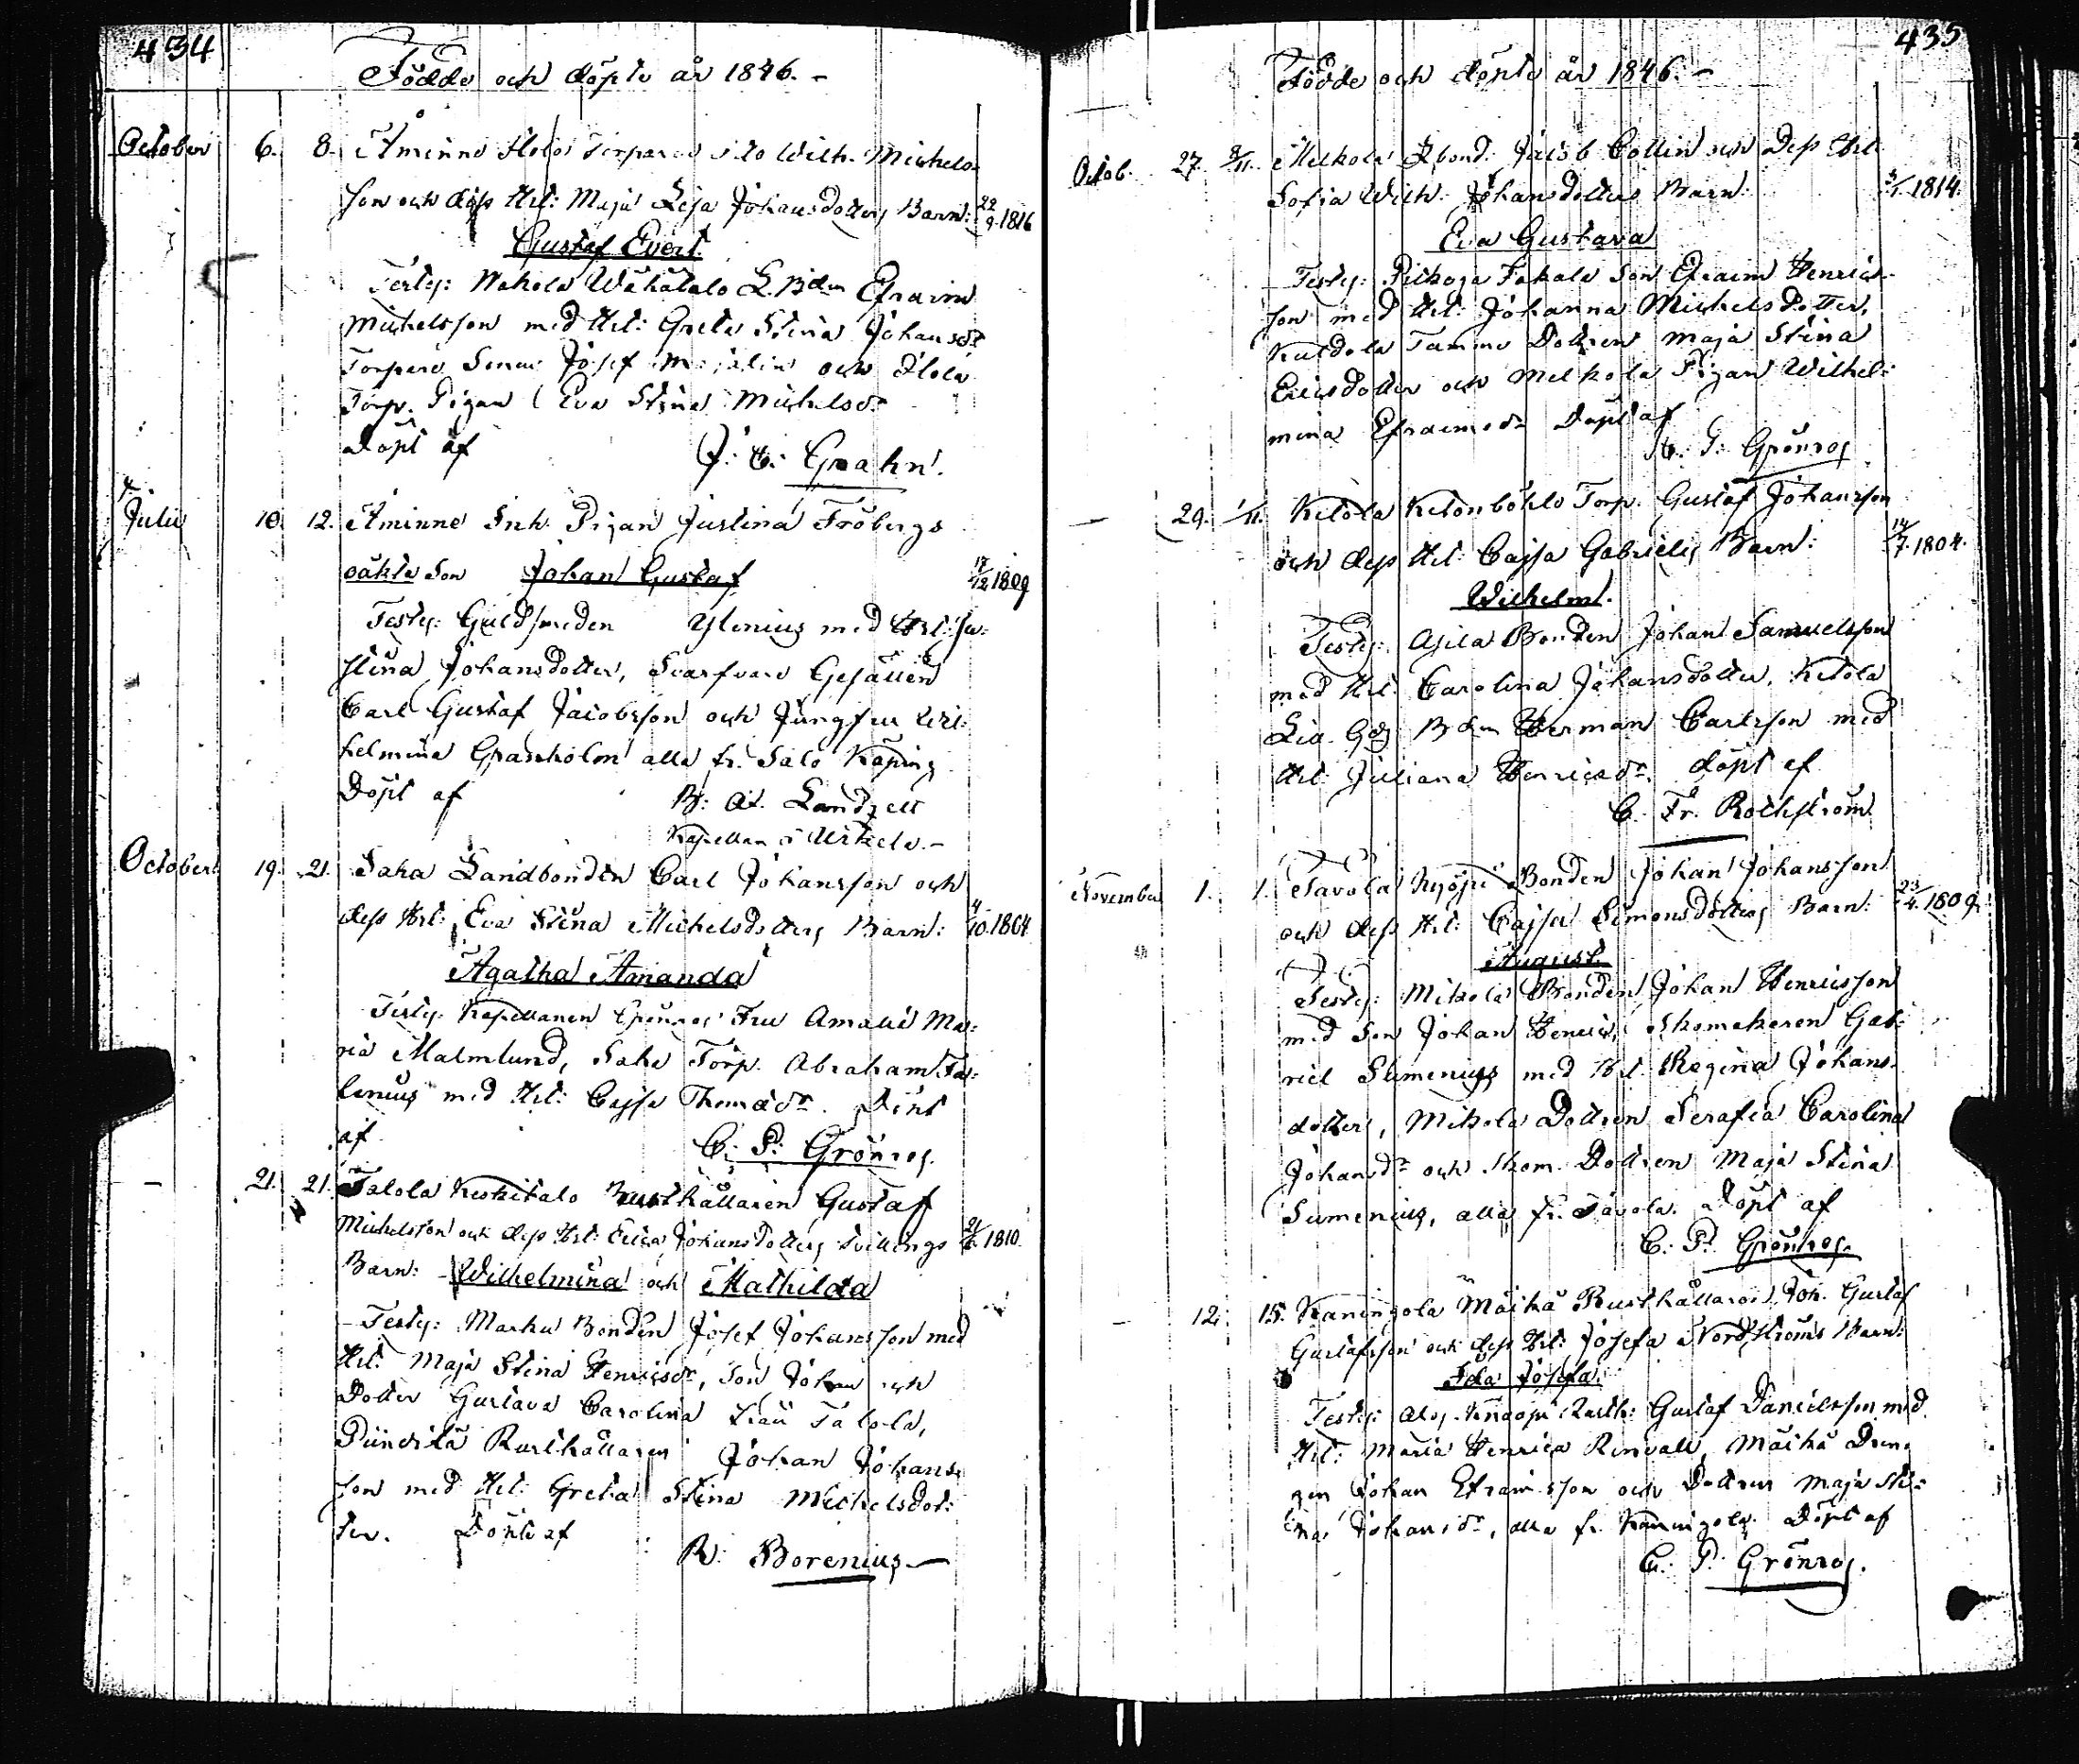 434
Födde och döpte år 1846. -
October 6. 8. Åminne Torparen Wilh. Michels-
son och dess Hst: Maja Johansdotters Barn: 22/9 1816
Gustaf Evert.
Testes: Wähätalo L. Bdn Efraim
Michelsson med Hst: Greta Stina Johansdr
Torpare Sonen Josef och
Torp. Pigan Eva Stina Michelsdr
Döpt af J: E: Grahn.
Julii 10. 12. Åminne Inh. Pigan Justina Fröbergs
oäkta Son Johan Gustaf 17/12 1809
Testes: Guldsmeden Ylenius med Hst: Ju-
stina Johansdotter, Svarfvare Gesällen
Carl Gustaf Jacobsson och Jungfru Wil-
helmina Granholm alla fr. Salo Köping
Döpt af B: At. Landzett
Kapellan i Uskela. -
October 19. 21. Saha Landbonden Carl Johansson och
dess Hst: Eva Stina Michelsdotters Barn: 4/10 1804
Agatha Amanda
Testes: Kapellanen Grönros' Fru Amalie Ma-
ria Malmlund, Saha Torp. Abraham Fa-
lenius med Hst: Cajsa Thomasdr. Döpt
af C: P: Grönros.
21. 21. Talola Keskitalo Rusthållaren Gustaf
Michelsson och dess Hst: Erica Johansdotters Tvillings 21/6 1810.
Barn: - Wilhelmina och Mathilda
Testes: Marku Bonden Josef Johansson med
Hst: Maja Stina Henricsdr, Son Johan och
Dotter Gustava Carolina från Talola,
Rusthållaren Johan Johans-
son med Hst: Greta Stina Michelsdot-
ter. Döpte af
R: Borenius
435
Födde och döpte år 1846. -
Octob. 27. 8/11. Melkola Lbond. Jacob Collin och Dess Hst:
Sofia Wilh. Johansdotters Barn: 1814.
Eva Gustava
Testes: Son Efraim Henrics-
son med Hst: Johanna Michelsdotter,
Tammo Dottren Maja Stina
Ericsdotter och Melkola Pigan Wilhel-
mina Efraimsdr Döpt af
C. P: Grönros
- 29. 1/11. Ketola Torp. Gustaf Johansson
och dess Hst: Cajsa Gabriels Barn: 14/7 1804.
Wilhelm.
Testes: Bonden Johan Samuelsson
med Hst: Carolina Johansdotter, Ketola
Bdn Herman Carlsson med
Hst: Juliana Henricsdr. Döpt af
C. Fr. Rothström
November 1. 1. Tavola Bonden Johan Johansson
och dess Hst: Cajsa Simonsdotters Barn: 23/4 1809.
August.
Testes: Mikola Bonden Johan Henricsson
med Son Johan Henric, Skomakaren Gab-
riel Sumenius med Hst. Regina Johans-
dotter, Mikola Dottren Serafia Carolina
Johansdr och Skom. Dottren Maja Stina
Sumenius, alla fr. Tavola. Döpt af
C. P. Grönros.
- 12. 15. Kaningola Mäihä Rusthållaren Joh. Gustaf
Gustafsson och dess Hst: Josefa Nordströms Barn:
Ida Josefa.
Testes: Rusth: Gustaf Danielsson med
Hst: Maria Henrica Renvall, Mäihä Drän-
gen Johan Efraimsson och Dottren Maja Sti-
na Johansdr, alla fr. Kaningola Döpt af
C: P: Grönros.